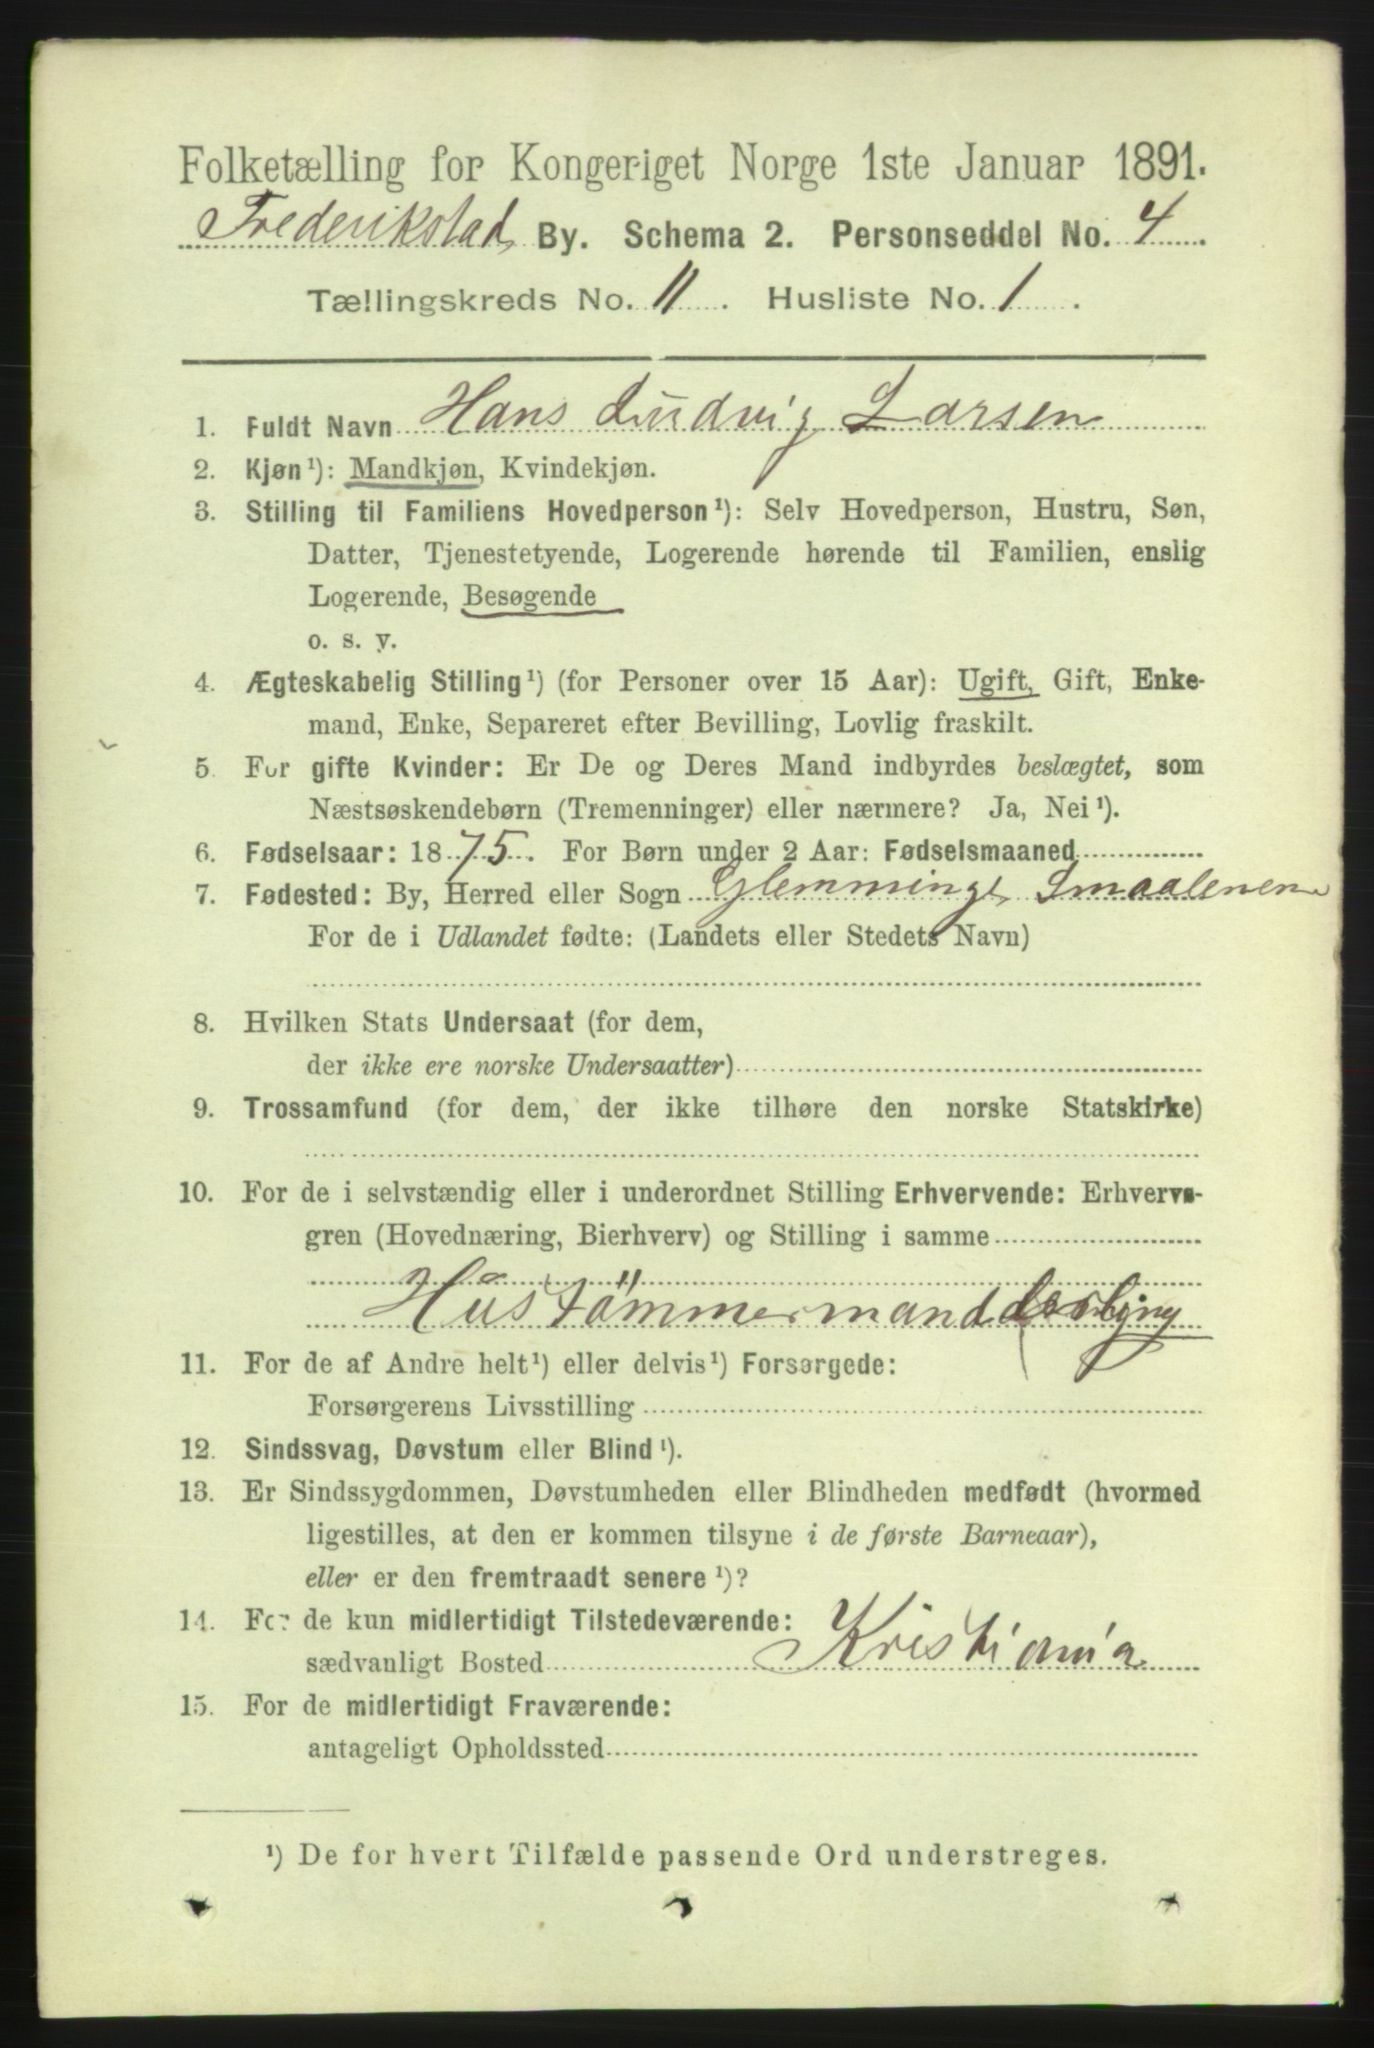 Folketælling for Kongeriget Norge 1ste Januar 1891.
Frederikstad By. Schema 2. Personseddel No. 4
Tællingskreds No. 11. Husliste No. 1.
1. Fuldt Navn Hans Ludvig Larsen
2. Kjøn¹): Mandkjøn, Kvindekjøn.
3. Stilling til Familiens Hovedperson¹): Selv Hovedperson, Hustru, Søn,
Datter, Tjenestetyende, Logerende hørende til Familien, enslig
Logerende, Besøgende
o. s. v.
4. Ægteskabelig Stilling¹) (for Personer over 15 Aar): Ugift, Gift, Enke-
mand, Enke, Separeret efter Bevilling, Lovlig fraskilt.
5. For gifte Kvinder: Er De og Deres Mand indbyrdes beslægtet, som
Næstsøskendebørn (Tremenninger) eller nærmere? Ja, Nei¹).
6. Fødselsaar: 1875. For Børn under 2 Aar: Fødselsmaaned
7. Fødested: By, Herred eller Sogn Glemminge Smaalenene
For de i Udlandet fødte: (Landets eller Stedets Navn)
8. Hvilken Stats Undersaat (for dem,
der ikke ere norske Undersaatter)
9. Trossamfund (for dem, der ikke tilhøre den norske Statskirke)
10. For de i selvstændig eller i underordnet Stilling Erhvervende: Erhvervs-
gren (Hovednæring, Bierhverv) og Stilling i samme
Hustømmermand
11. For de af Andre helt¹) eller delvis¹) Forsørgede:
Forsørgerens Livsstilling
12. Sindssvag, Døvstum eller Blind¹).
13. Er Sindssygdommen, Døvstumheden eller Blindheden medfødt (hvormed
ligestilles, at den er kommen tilsyne i de første Barneaar),
eller er den fremtraadt senere¹)?
14. For de kun midlertidigt Tilstedeværende:
sædvanligt Bosted Kristiania
15. For de midlertidigt Fraværende:
antageligt Opholdssted
¹) De for hvert Tilfælde passende Ord understreges.